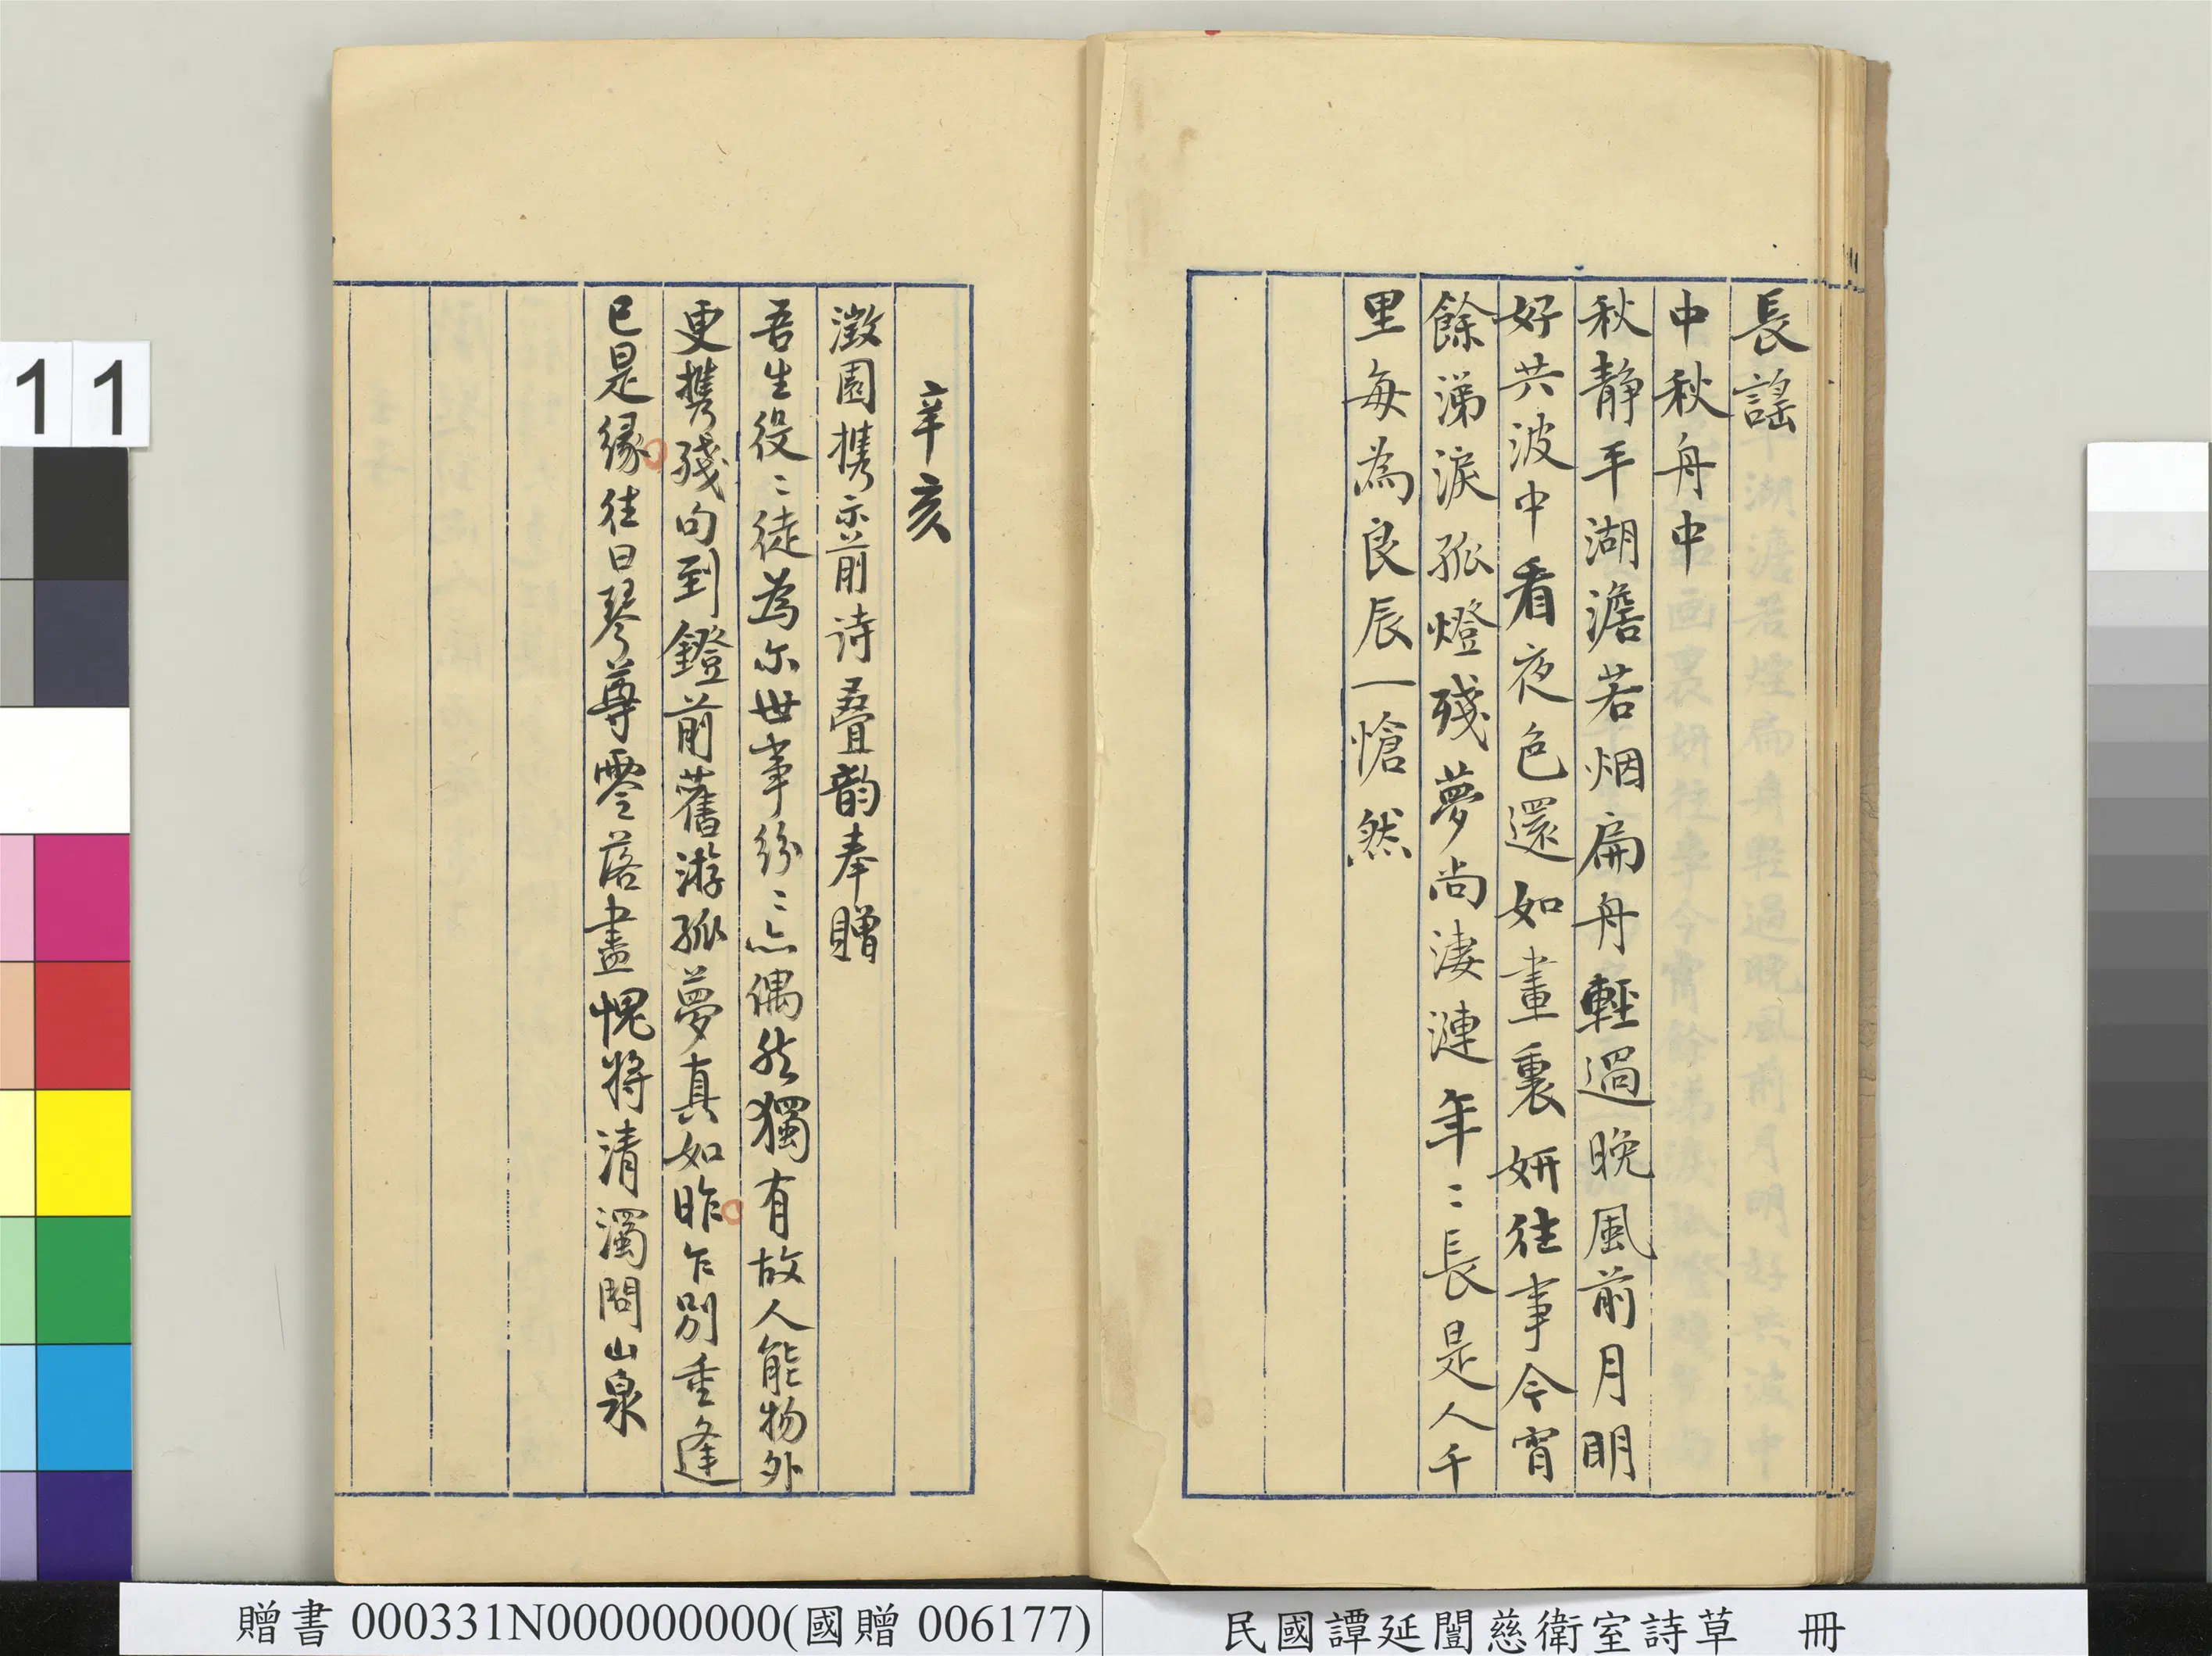 長謠
中秋舟中
秋靜平湖澹若烟扁舟輕過晚風前月明
好共波中看夜色還如畫裏妍往事今宵
餘涕淚孤燈殘夢尚淒漣年〻長是人千
里每為良辰一愴然
辛亥
澂園携示前诗疊韵奉贈
吾生役〻徒為尔世事紛〻亦偶然獨有故人能物外
更携殘句到鐙前舊游孤夢真如昨乍別重逢
已是緣往日琴尊零落盡愧將清濁問山泉
11
贈書000331N000000000(國贈006177)
民國譚延闓慈衛室詩草 冊